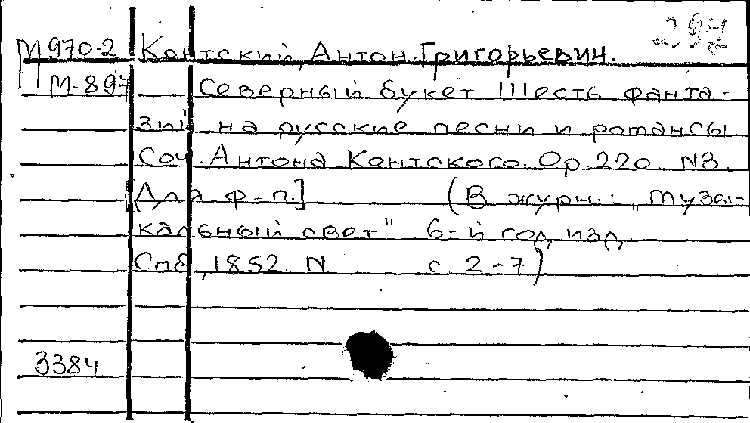 М970-2 Контский, Антон Григорьевич.
М-897 Северный букет Шесть фанта-
зий на русские песни и романсы
Соч. Антона Контского. Op. 220 N3.
[Для ф-п.] (В журн.: "Музы-
кальный свет" 6-й год изд.
Спб, 1852 N с. 2-7)
3384